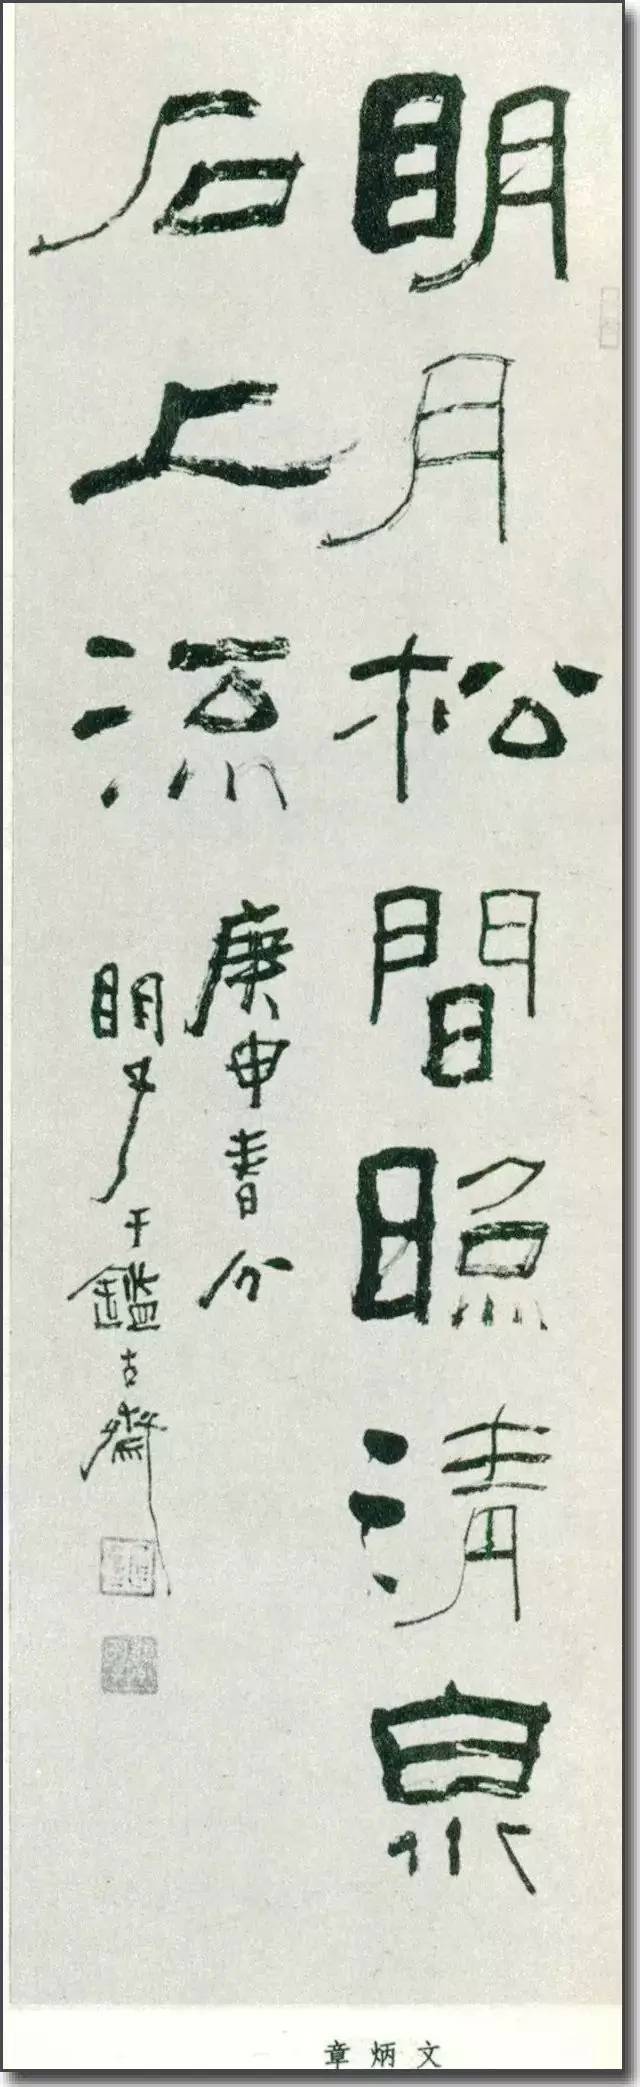 明月松間照清泉
石上流 庚申春分
于鑑古齋
章炳文